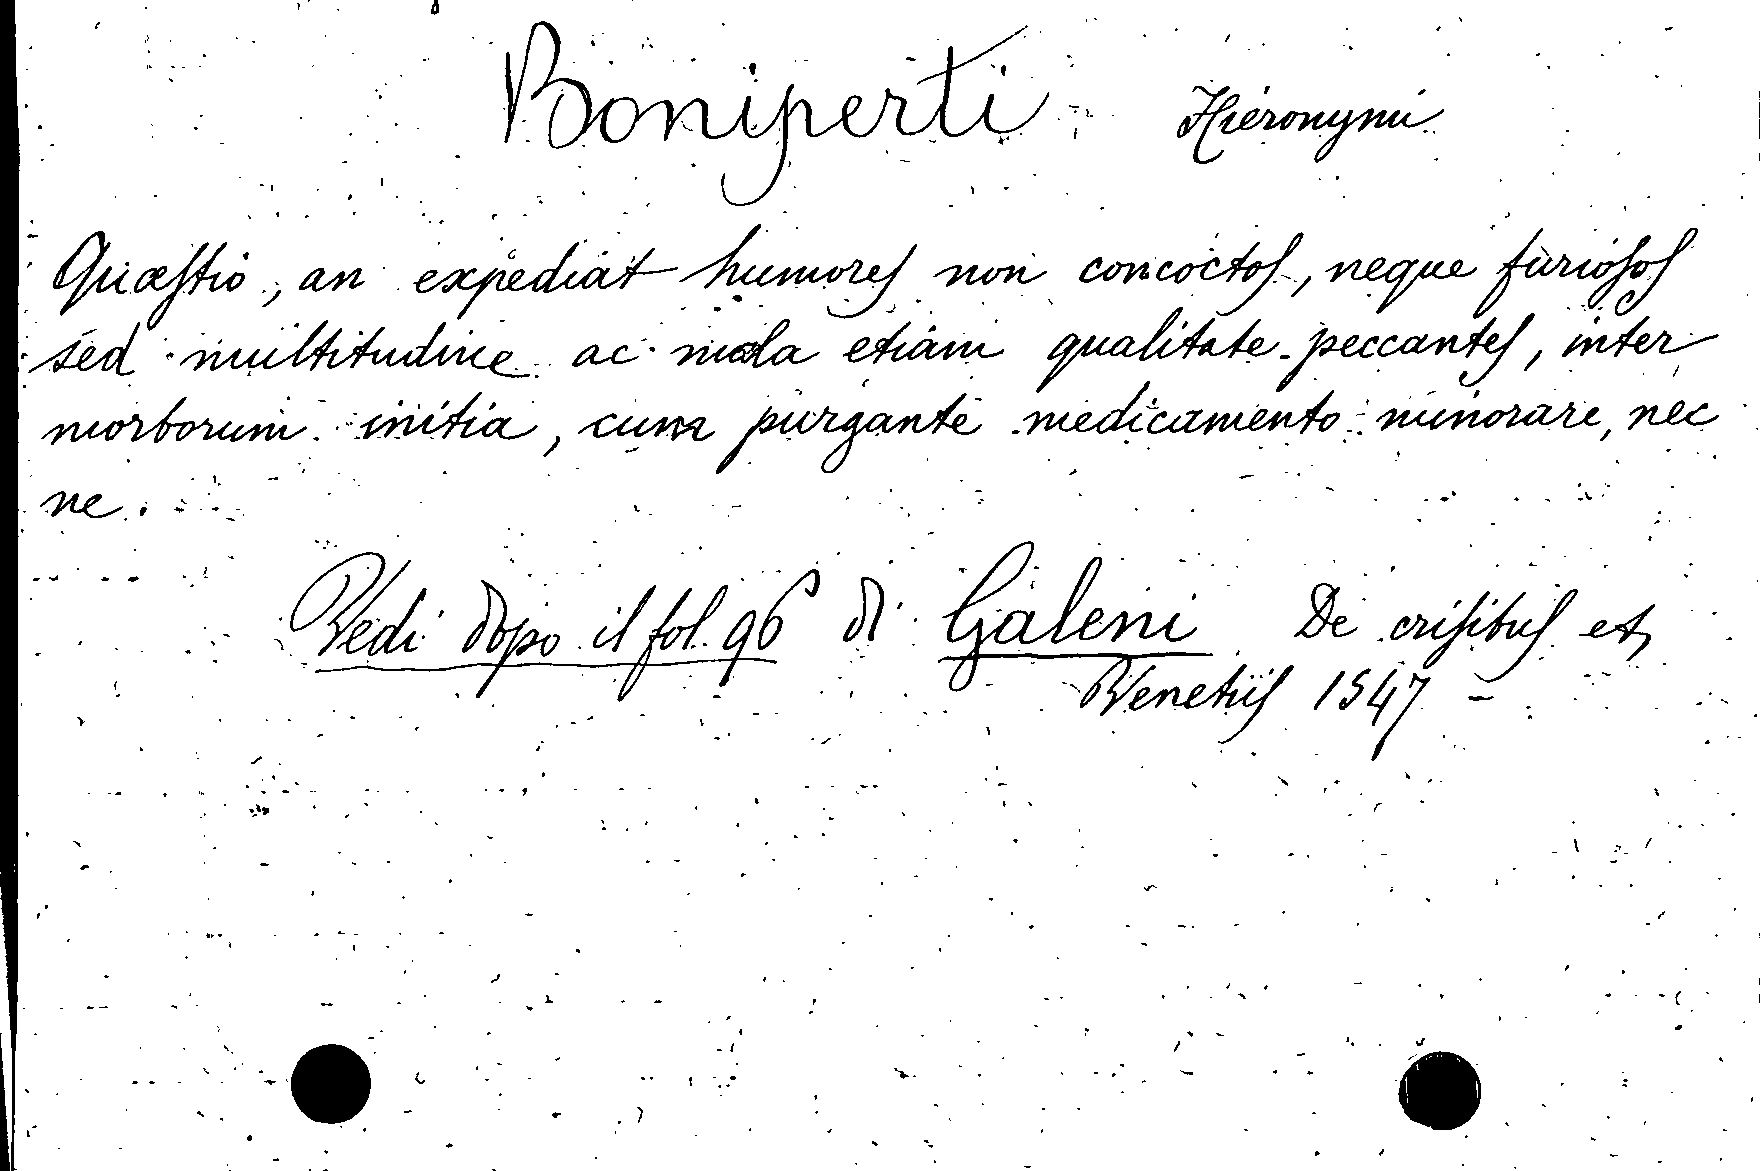 Boniperti Hieronymi
Quæstio, an expediat humores non concoctos, neque furiosos
sed multitudine ac mala etiam qualitate peccantes, inter
morborum initia, cum purgante medicamento minorare, nec
ne.
Vedi dopo il fol. 96 di Galeni De crisibus et
Venetiis 1547 -